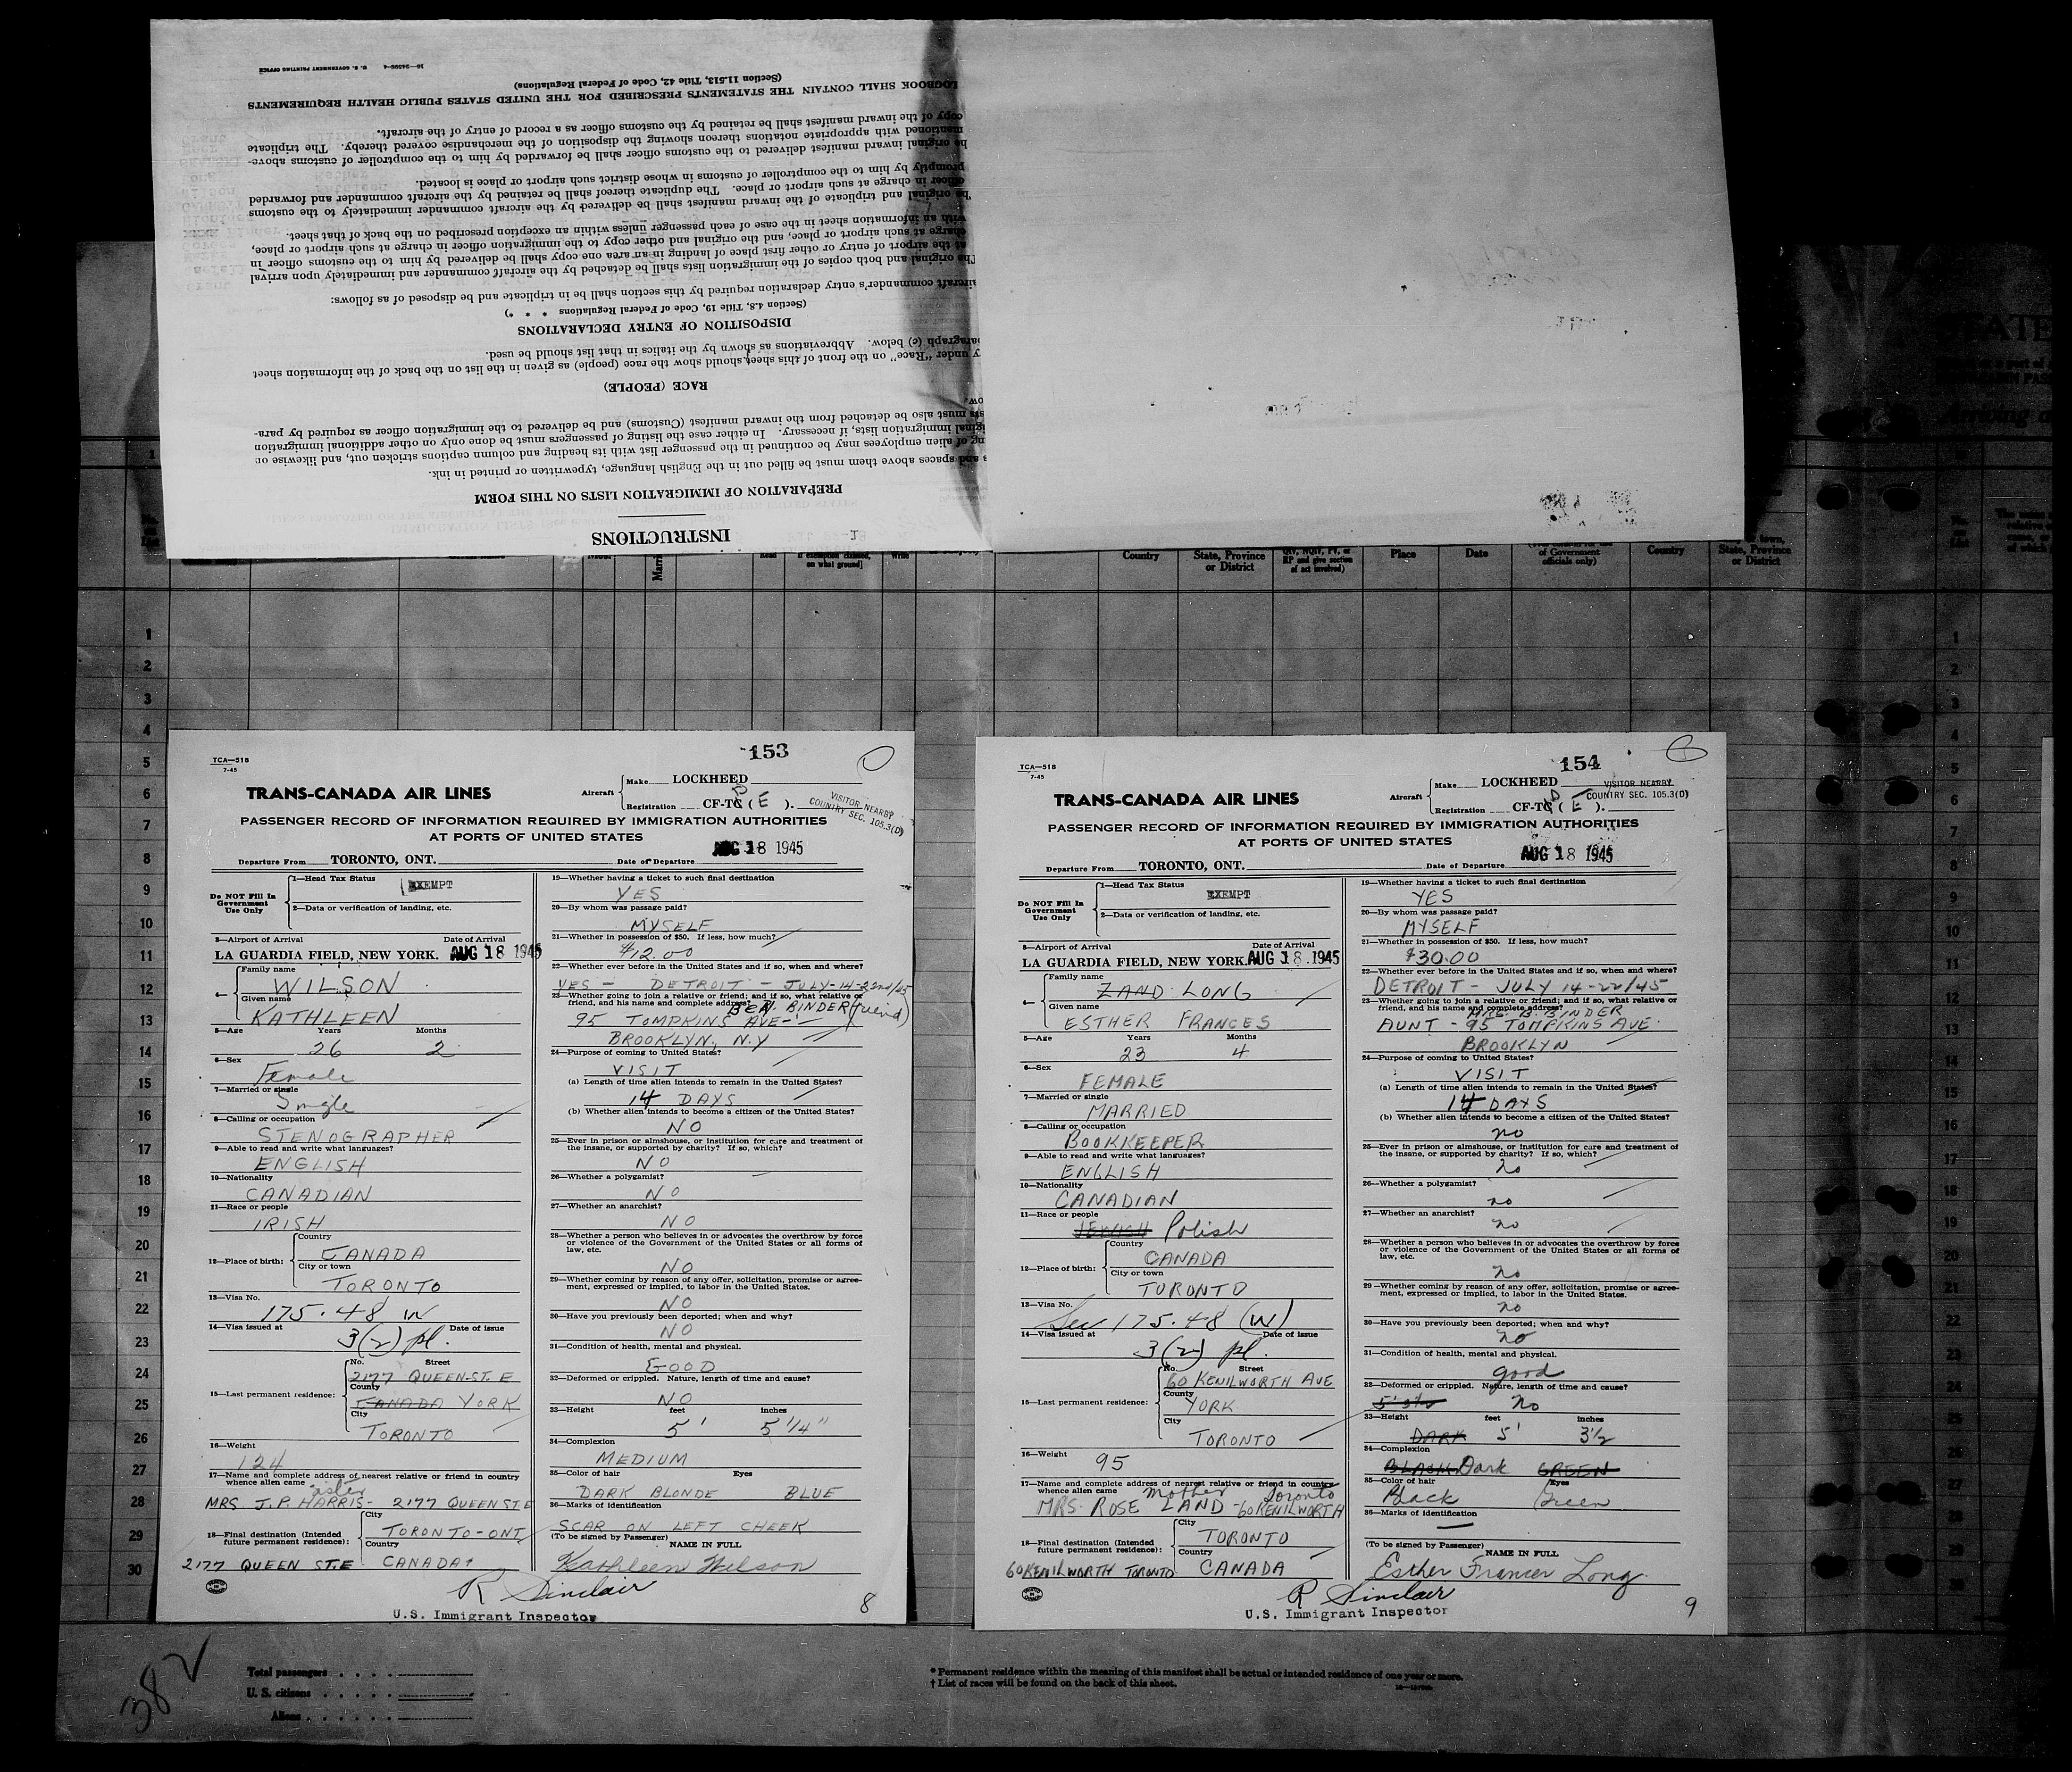 INSTRUCTIONS
PREPARATION OF IMMIGRATION LISTS ON THIS FORM
and spaces above them must be filled out in the English language, typewritten or printed in ink.
of alien employees may be continued in the passenger list with its heading and column captions stricken out, and likewise on
immigration lists, if necessary. In either case the listing of passengers must be done only on other additional immigration
must also be detached from the inward manifest (Customs) and be delivered to the immigration officer as required by para-
RACE (PEOPLE)
under "Race" on the front of this sheet should show the race (people) as given in the list on the back of the information sheet
paragraph (c) below. Abbreviations as shown by the italics in that list should be used.
DISPOSITION OF ENTRY DECLARATIONS
(Section 4.8, Title 19, Code of Federal Regulations * * *)
aircraft commander's entry declaration required by this section shall be in triplicate and be disposed of as follows:
The original and both copies of the immigration lists shall be detached by the aircraft commander and immediately upon arrival
at the airport of entry or other first place of landing in an area one copy shall be delivered by him to the customs officer in
charge at such airport or place, and the original and other copy to the immigration officer in charge at such airport or place,
with an information sheet in the case of each passenger unless within an exception prescribed on the back of that sheet.
The original and triplicate of the inward manifest shall be delivered by the aircraft commander immediately to the customs
officer in charge at such airport or place. The duplicate thereof shall be retained by the aircraft commander and forwarded
promptly by him to the comptroller of customs in whose district such airport or place is located.
The original inward manifest delivered to the customs officer shall be forwarded by him to the comptroller of customs above-
mentioned with appropriate notations thereon showing the disposition of the merchandise covered thereby. The triplicate
copy of the inward manifest shall be retained by the customs officer as a record of entry of the aircraft.
LOGBOOK SHALL CONTAIN THE STATEMENTS PRESCRIBED FOR THE UNITED STATES PUBLIC HEALTH REQUIREMENTS
(Section 11.513, Title 42, Code of Federal Regulations)
U. S. GOVERNMENT PRINTING OFFICE
Read
if exemption claimed, on what ground]
Write
Country
State, Province or District
QIV, NQIV, PV, or RP and give section of act involved)
Place
Date
of Government officials only)
Country
State, Province or District
1
2
3
4
5
6
7
8
9
10
11
12
13
14
15
16
17
18
19
20
21
22
23
24
25
26
27
28
29
30
153
TCA—518
7-45
TRANS-CANADA AIR LINES
Aircraft
Make LOCKHEED
Registration CF-TC (E).
VISITOR NEARBY
COUNTRY SEC. 105.3(D)
PASSENGER RECORD OF INFORMATION REQUIRED BY IMMIGRATION AUTHORITIES
AT PORTS OF UNITED STATES
Departure From TORONTO, ONT. Date of Departure AUG 18 1945
Do NOT Fill In Government Use Only
1—Head Tax Status EXEMPT
2—Data or verification of landing, etc.
3—Airport of Arrival Date of Arrival
LA GUARDIA FIELD, NEW YORK. AUG 18 1945
4— Family name
WILSON
Given name
KATHLEEN
5—Age Years Months
26 2
6—Sex
Female
7—Married or single
Single
8—Calling or occupation
STENOGRAPHER
9—Able to read and write what languages?
ENGLISH
10—Nationality
CANADIAN
11—Race or people
IRISH
12—Place of birth:
Country
CANADA
City or town
TORONTO
13—Visa No.
175.48 W
14—Visa issued at Date of issue
3(2) pl.
15—Last permanent residence:
No. Street
2177 QUEEN ST. E
County
CANADA YORK
City
TORONTO
16—Weight
124
17—Name and complete address of nearest relative or friend in country
whence alien came
sister
MRS J.P. HARRIS - 2177 QUEEN ST E
18—Final destination (Intended future permanent residence):
City
TORONTO - ONT
Country
2177 QUEEN ST. E CANADA
19—Whether having a ticket to such final destination
YES
20—By whom was passage paid?
MYSELF
21—Whether in possession of $50. If less, how much?
$12.00
22—Whether ever before in the United States and if so, when and where?
YES - DETROIT - JULY-14-22nd/45
23—Whether going to join a relative or friend; and if so, what relative or
friend, and his name and complete address?
BEN. BINDER (friend)
95 TOMPKINS AVE-
BROOKLYN, N.Y
24—Purpose of coming to United States?
VISIT
(a) Length of time alien intends to remain in the United States?
14 DAYS
(b) Whether alien intends to become a citizen of the United States?
NO
25—Ever in prison or almshouse, or institution for care and treatment of
the insane, or supported by charity? If so, which?
NO
26—Whether a polygamist?
NO
27—Whether an anarchist?
NO
28—Whether a person who believes in or advocates the overthrow by force
or violence of the Government of the United States or all forms of
law, etc.
NO
29—Whether coming by reason of any offer, solicitation, promise or agree-
ment, expressed or implied, to labor in the United States.
NO
30—Have you previously been deported; when and why?
NO
31—Condition of health, mental and physical.
GOOD
32—Deformed or crippled. Nature, length of time and cause?
NO
33—Height feet inches
5' 5 1/4"
34—Complexion
MEDIUM
35—Color of hair Eyes
DARK BLONDE BLUE
36—Marks of identification
SCAR ON LEFT CHEEK
(To be signed by Passenger)
NAME IN FULL
Kathleen Wilson
R Sinclair
U.S. Immigrant Inspector
8
154
TCA—518
7-45
TRANS-CANADA AIR LINES
Aircraft
Make LOCKHEED
Registration CF-TC (E).
VISITOR NEARBY
COUNTRY SEC. 105.3(D)
PASSENGER RECORD OF INFORMATION REQUIRED BY IMMIGRATION AUTHORITIES
AT PORTS OF UNITED STATES
Departure From TORONTO, ONT. Date of Departure AUG 18 1945
Do NOT Fill In Government Use Only
1—Head Tax Status EXEMPT
2—Data or verification of landing, etc.
3—Airport of Arrival Date of Arrival
LA GUARDIA FIELD, NEW YORK. AUG 18 1945
4— Family name
ZAND LONG
Given name
ESTHER FRANCES
5—Age Years Months
23 4
6—Sex
FEMALE
7—Married or single
MARRIED
8—Calling or occupation
BOOKKEEPER
9—Able to read and write what languages?
ENGLISH
10—Nationality
CANADIAN
11—Race or people
JEWISH Polish
12—Place of birth:
Country
CANADA
City or town
TORONTO
13—Visa No.
Sec 175.48 (W)
14—Visa issued at Date of issue
3(2) pl.
15—Last permanent residence:
No. Street
60 KENILWORTH AVE
County
YORK
City
TORONTO
16—Weight
95
17—Name and complete address of nearest relative or friend in country
whence alien came
mother Toronto
MRS. ROSE LAND - 60 KENILWORTH
18—Final destination (Intended future permanent residence):
City
TORONTO
Country
60 KENILWORTH TORONTO CANADA
19—Whether having a ticket to such final destination
YES
20—By whom was passage paid?
MYSELF
21—Whether in possession of $50. If less, how much?
$30.00
22—Whether ever before in the United States and if so, when and where?
DETROIT - JULY 14-22/45
23—Whether going to join a relative or friend; and if so, what relative or
friend, and his name and complete address?
MRS. B. BINDER
AUNT - 95 TOMPKINS AVE.
BROOKLYN
24—Purpose of coming to United States?
VISIT
(a) Length of time alien intends to remain in the United States?
14 DAYS
(b) Whether alien intends to become a citizen of the United States?
no
25—Ever in prison or almshouse, or institution for care and treatment of
the insane, or supported by charity? If so, which?
no
26—Whether a polygamist?
no
27—Whether an anarchist?
no
28—Whether a person who believes in or advocates the overthrow by force
or violence of the Government of the United States or all forms of
law, etc.
no
29—Whether coming by reason of any offer, solicitation, promise or agree-
ment, expressed or implied, to labor in the United States.
no
30—Have you previously been deported; when and why?
no
31—Condition of health, mental and physical.
good
32—Deformed or crippled. Nature, length of time and cause?
no
33—Height feet inches
DARK 5' 3½
34—Complexion
BLACK Dark GREEN
35—Color of hair Eyes
Black Green
36—Marks of identification
—
(To be signed by Passenger)
NAME IN FULL
Esther Frances Long
R Sinclair
U.S. Immigrant Inspector
9
382
Total passengers
U. S. citizens
Aliens
* Permanent residence within the meaning of this manifest shall be actual or intended residence of one year or more.
† List of races will be found on the back of this sheet.